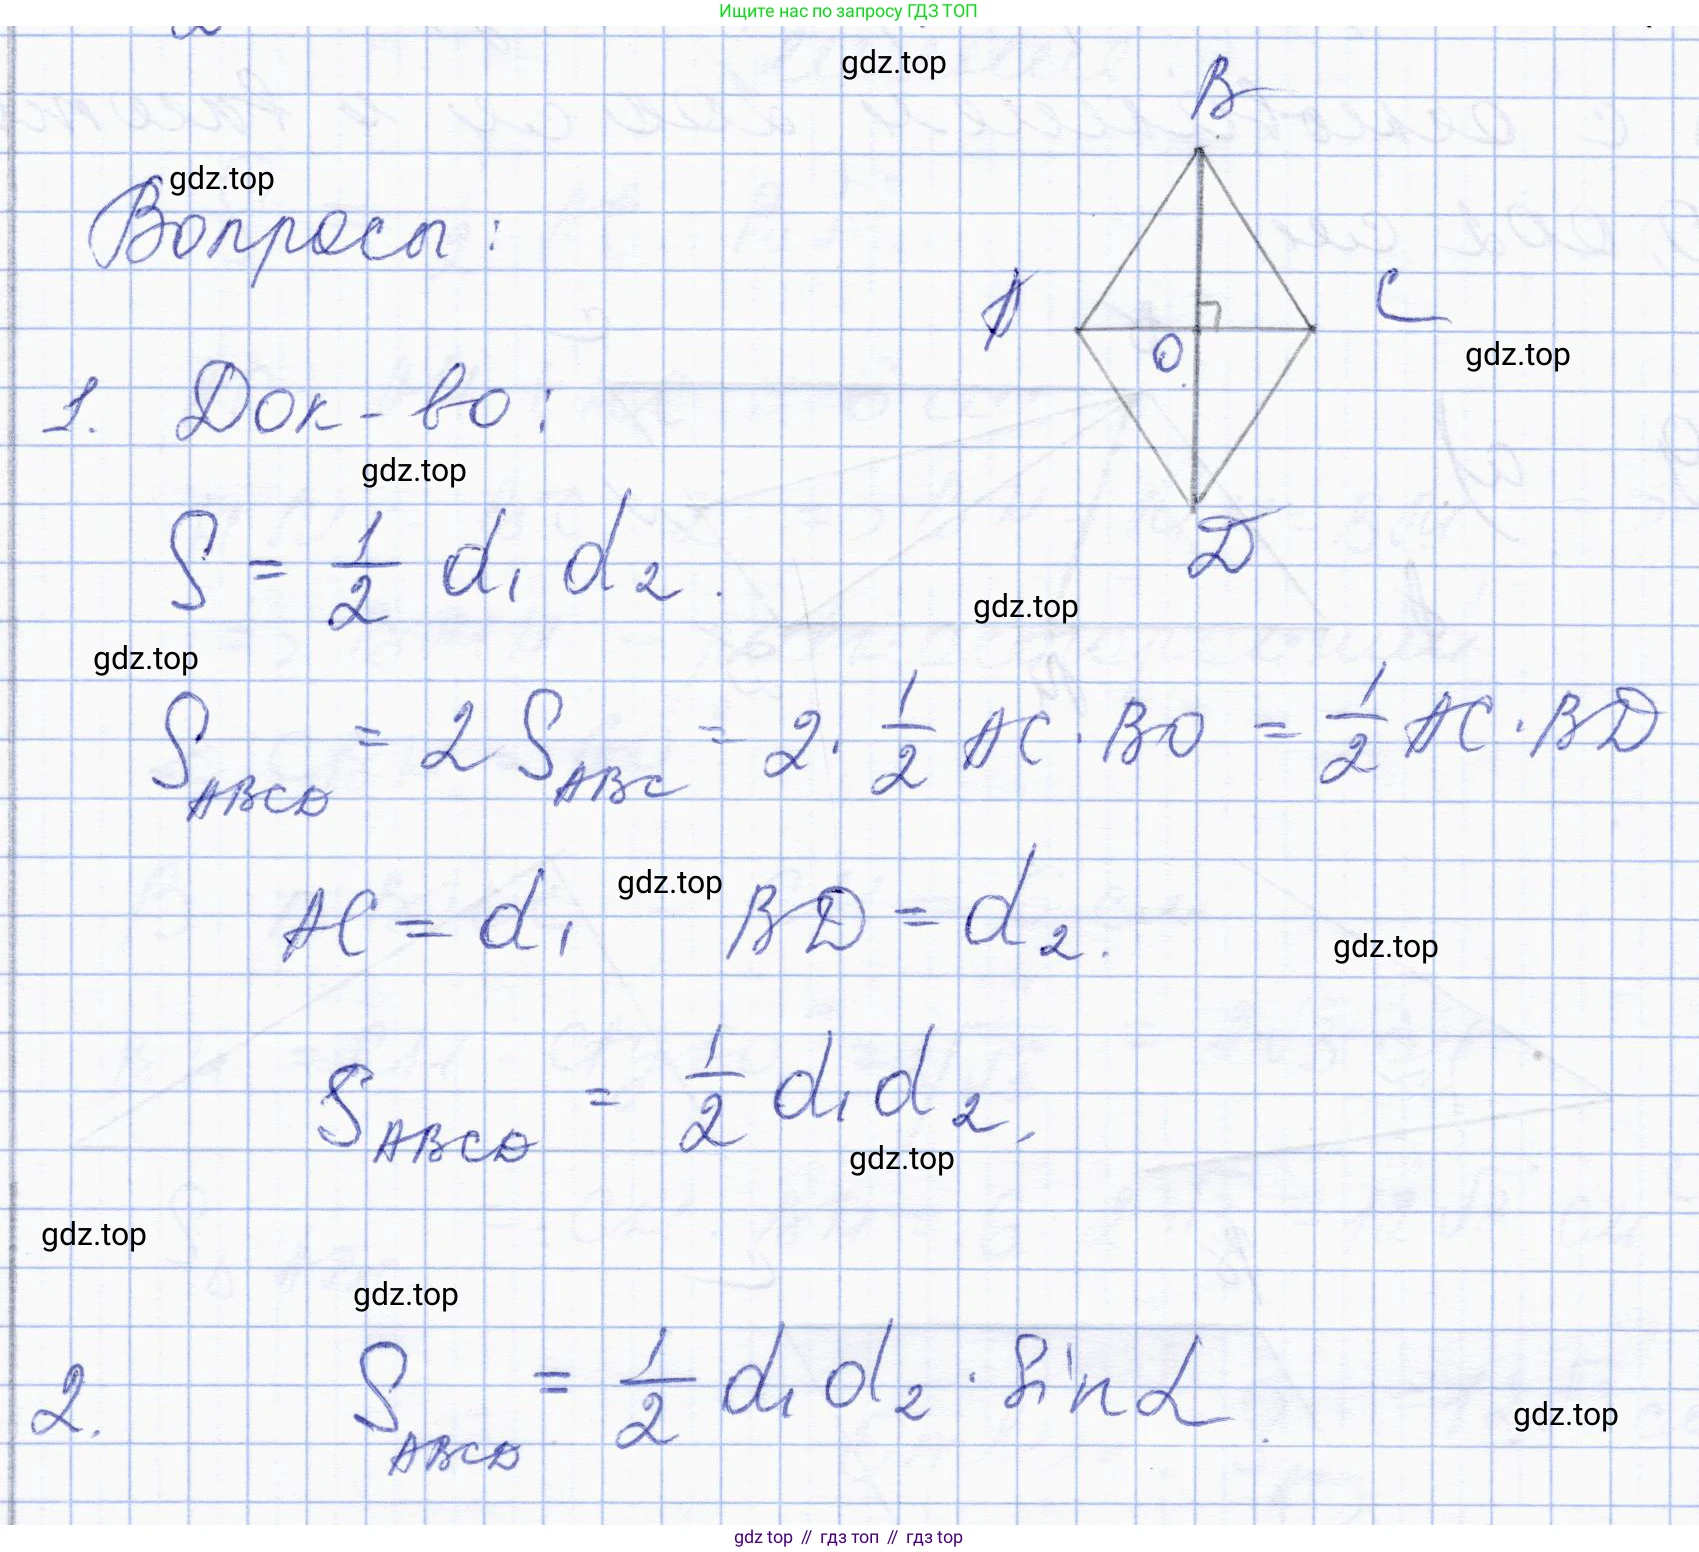 Ищите нас по запросу ГДЗ ТОП
gdz.top
B
gdz.top
Вопросы:
A
C
O
gdz.top
1. Док-во:
gdz.top
D
S = 1/2 d₁ d₂.
gdz.top
gdz.top
S_ABCD = 2 S_ABC = 2 · 1/2 AC · BO = 1/2 AC · BD
gdz.top
AC = d₁ BD = d₂.
gdz.top
S_ABCD = 1/2 d₁ d₂.
gdz.top
gdz.top
gdz.top
2. S_ABCD = 1/2 d₁ d₂ · sin α.
gdz.top
gdz top // гдз топ // гдз top